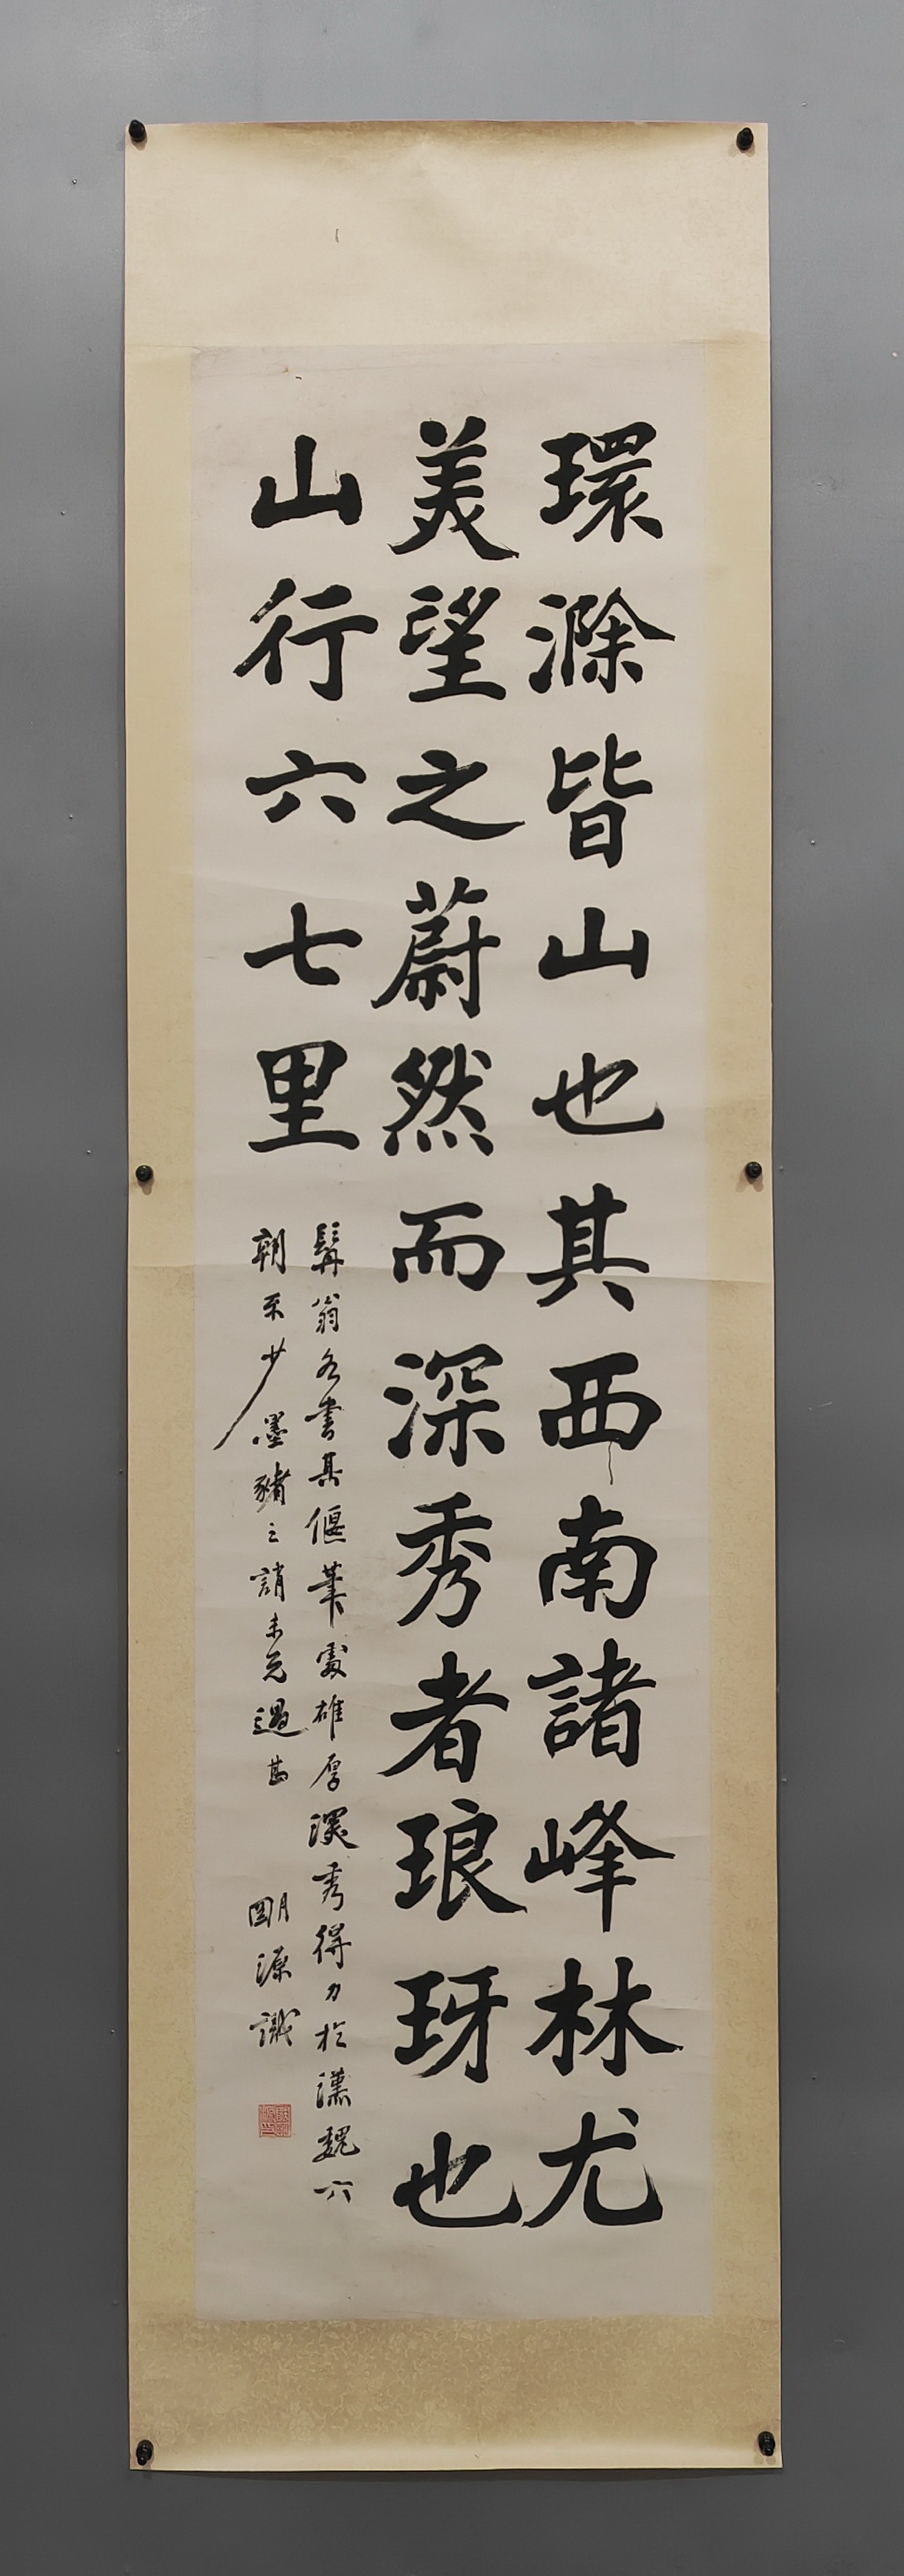 環滁皆山也其西南諸峰林尤
美望之蔚然而深秀者琅玡也
山行六七里
髯翁各書其偃筆處雄厚深秀得力於漢魏六
朝至少墨豬之誚未免過甚
明源識